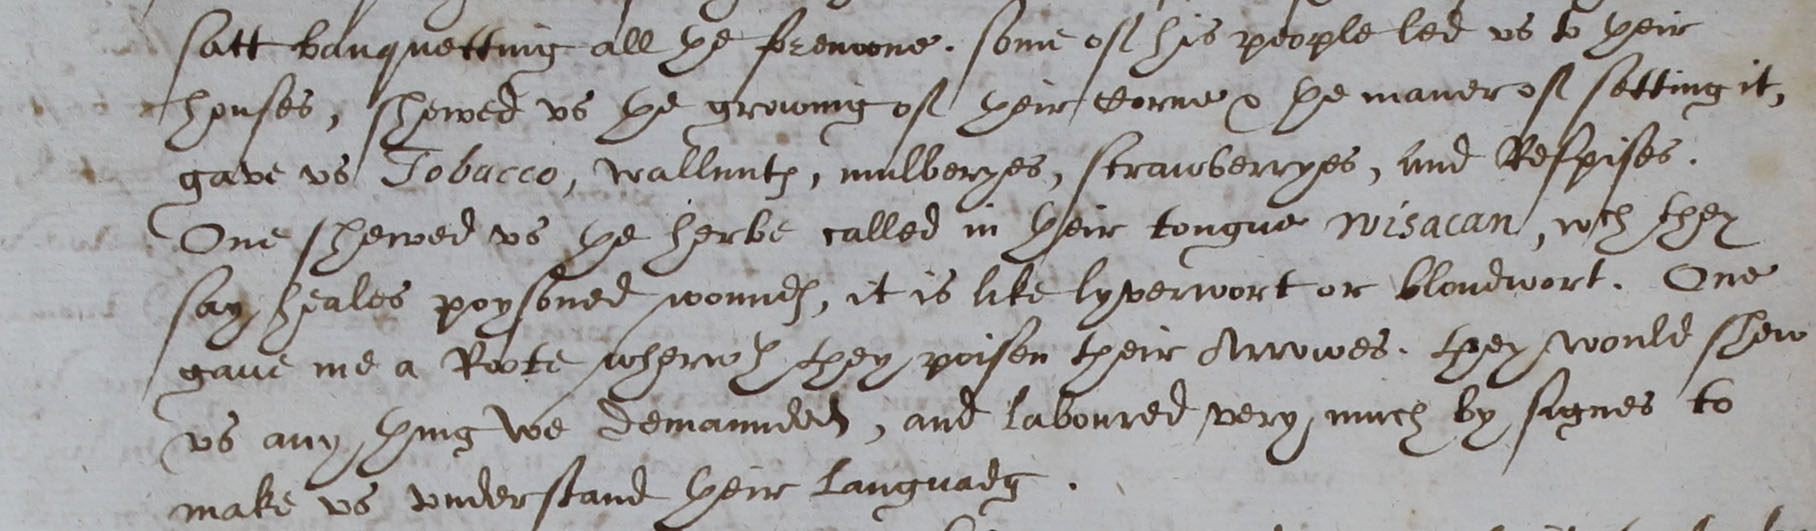 satt banquetting all þe forenoone. some of his people led vs to þeir
houses, shewed vs þe growing of þeir Corne & þe maner of setting it,
gave vs Tobacco, wallnutes, mulberyes, strawberryes, and Respises.
One shewed vs þe herbe called in þeir tongue wisacan, wch they
say heales poysoned woundes, it is like lyverwort or bloudwort. One
gave me a Roote wherwth they poison their Arrowes. they would shew
vs any þing we demaunded, and laboured very much by signes to
make vs vnderstand þeir Languadg.